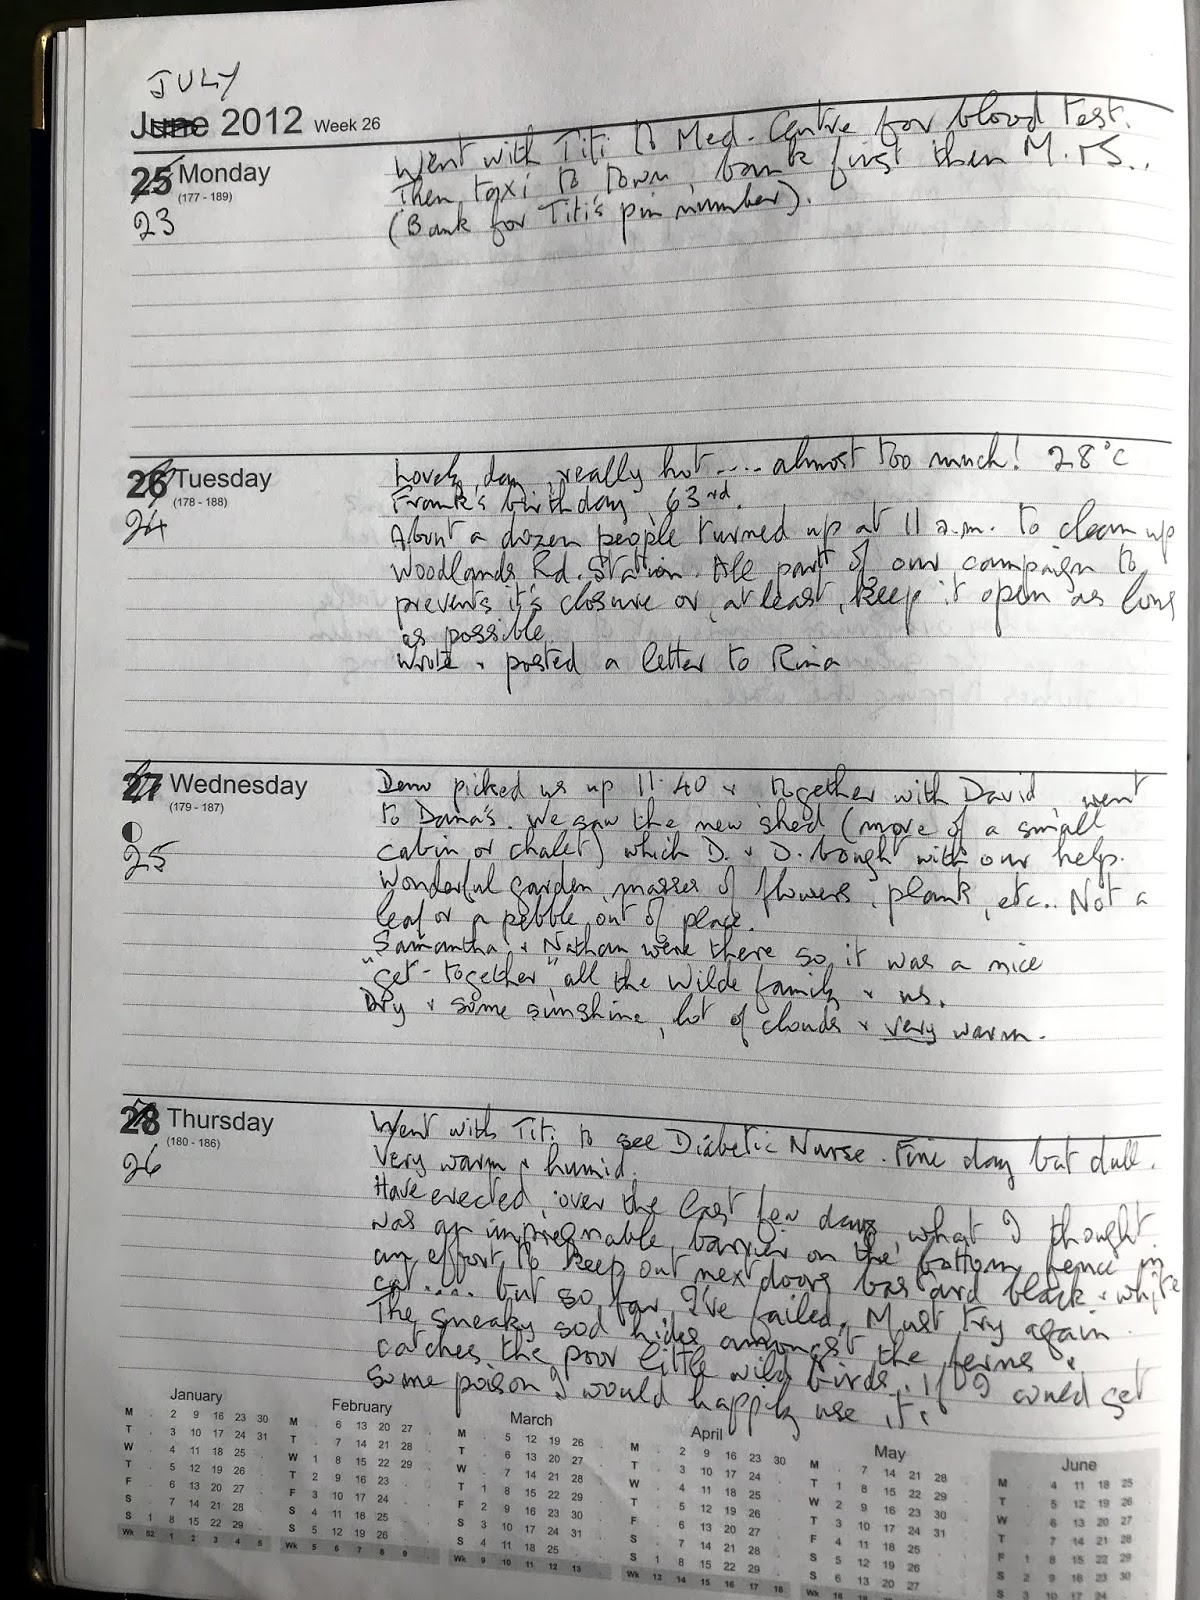 JULY
June 2012 Week 26
25 Monday
(177 - 189)
23
Went with Titi to Med. Centre for blood test.
Then taxi to town, bank first then M. & S..
(Bank for Titi's pin number).
26 Tuesday
(178 - 188)
24
Lovely day, really hot .... almost too much! 28°C
Frank's birthday, 63rd.
About a dozen people turned up at 11 a.m. to clean up
Woodlands Rd. Station. All part of our campaign to
prevents it's closure or, at least, keep it open as long
as possible.
Wrote & posted a letter to Rina
27 Wednesday
(179 - 187)
25
picked us up 11.40 & together with David, went
to Dana's. We saw the new shed (more of a small
cabin or chalet) which D. & D. bought with our help.
Wonderful garden, masses of flowers, plants, etc.. Not a
leaf or a pebble out of place.
Samantha & Nathan were there so it was a nice
"get-together" all the Wilde family & us.
Dry & some sunshine, lot of clouds & very warm.
28 Thursday
(180 - 186)
26
Went with Titi to see Diabetic Nurse. Fine day but dull.
Very warm & humid.
Have erected, over the last few days, what I thought
was an impregnable barrier on the bottom fence in
an effort to keep out next doors bastard black & white
cat .... but so far I've failed. Must try again.
The sneaky sod hides amongst the ferns &
catches the poor little wild birds. If I could get
some poison I would happily use it.
January
M . 2 9 16 23 30
T . 3 10 17 24 31
W . 4 11 18 25 .
T . 5 12 19 26 .
F . 6 13 20 27 .
S . 7 14 21 28 .
S 1 8 15 22 29 .
Wk 52 1 2 3 4 5
February
M . 6 13 20 27 .
T . 7 14 21 28 .
W 1 8 15 22 29 .
T 2 9 16 23 .
F 3 10 17 24 .
S 4 11 18 25 .
S 5 12 19 26 .
Wk 5 6 7 8 9 .
March
M . 5 12 19 26 .
T . 6 13 20 27 .
W . 7 14 21 28 .
T 1 8 15 22 29 .
F 2 9 16 23 30 .
S 3 10 17 24 31 .
S 4 11 18 25 .
Wk 9 10 11 12 13 .
April
M . 2 9 16 23 30
T . 3 10 17 24 .
W . 4 11 18 25 .
T . 5 12 19 26 .
F . 6 13 20 27 .
S . 7 14 21 28 .
S 1 8 15 22 29 .
Wk 13 14 15 16 17 18
May
M . 7 14 21 28
T 1 8 15 22 29
W 2 9 16 23 30
T 3 10 17 24 31
F 4 11 18 25 .
S 5 12 19 26 .
S 6 13 20 27 .
Wk 18
June
M . 4 11 18 25
T . 5 12 19 26
W . 6 13 20 27
T . 7 14 21 28
F 1 8 15 22 29
S 2 9 16 23 30
S 3 10 17 24